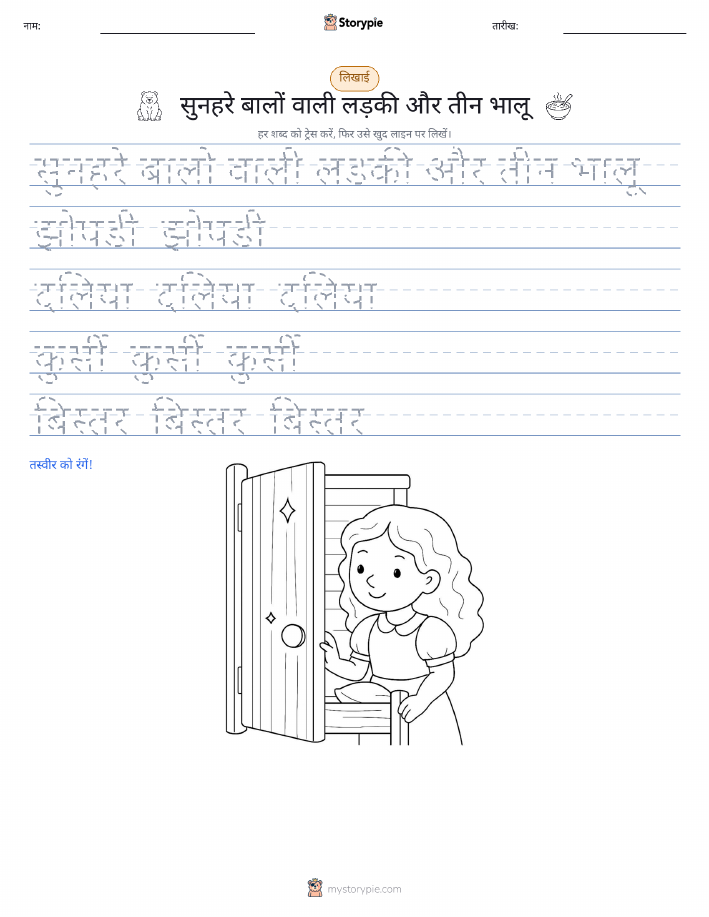 नाम:
Storypie
तारीख:
लिखाई
सुनहरे बालों वाली लड़की और तीन भालू
हर शब्द को ट्रेस करें, फिर उसे खुद लाइन पर लिखें।
सुनहरे बालों वाली लड़की और तीन भालू
झोपड़ी झोपड़ी
दलिया दलिया दलिया
कुर्सी कुर्सी कुर्सी
बिस्तर बिस्तर बिस्तर
तस्वीर को रंगें!
mystorypie.com